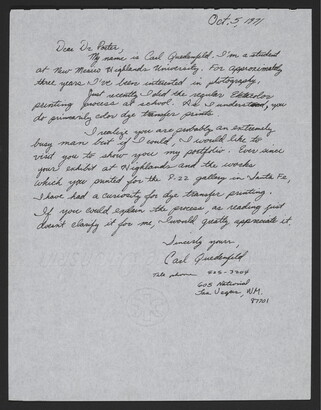 Oct. 5, 1971
Dear Dr. Porter,
My name is Carl I'm a student
at New Mexico Highlands University. For approximately
three years I've been interested in photography.
Just recently I did the regular Ektacolor
printing process at school. As I understand, you
do primarily color dye transfer prints.
I realize you are probably an extremely
busy man but if I could, I would like to
visit you to show you my portfolio. Ever since
your exhibit at Highlands and the works
which you printed for the 8.22 gallery in Santa Fe,
I have had a curiosity for dye transfer printing.
If you could explain the process, as reading just
doesn't clarify it for me, I would greatly appreciate it.
Sincerely yours,
Carl
Telephone 425-7204
605 National
Las Vegas, N.M.
87701